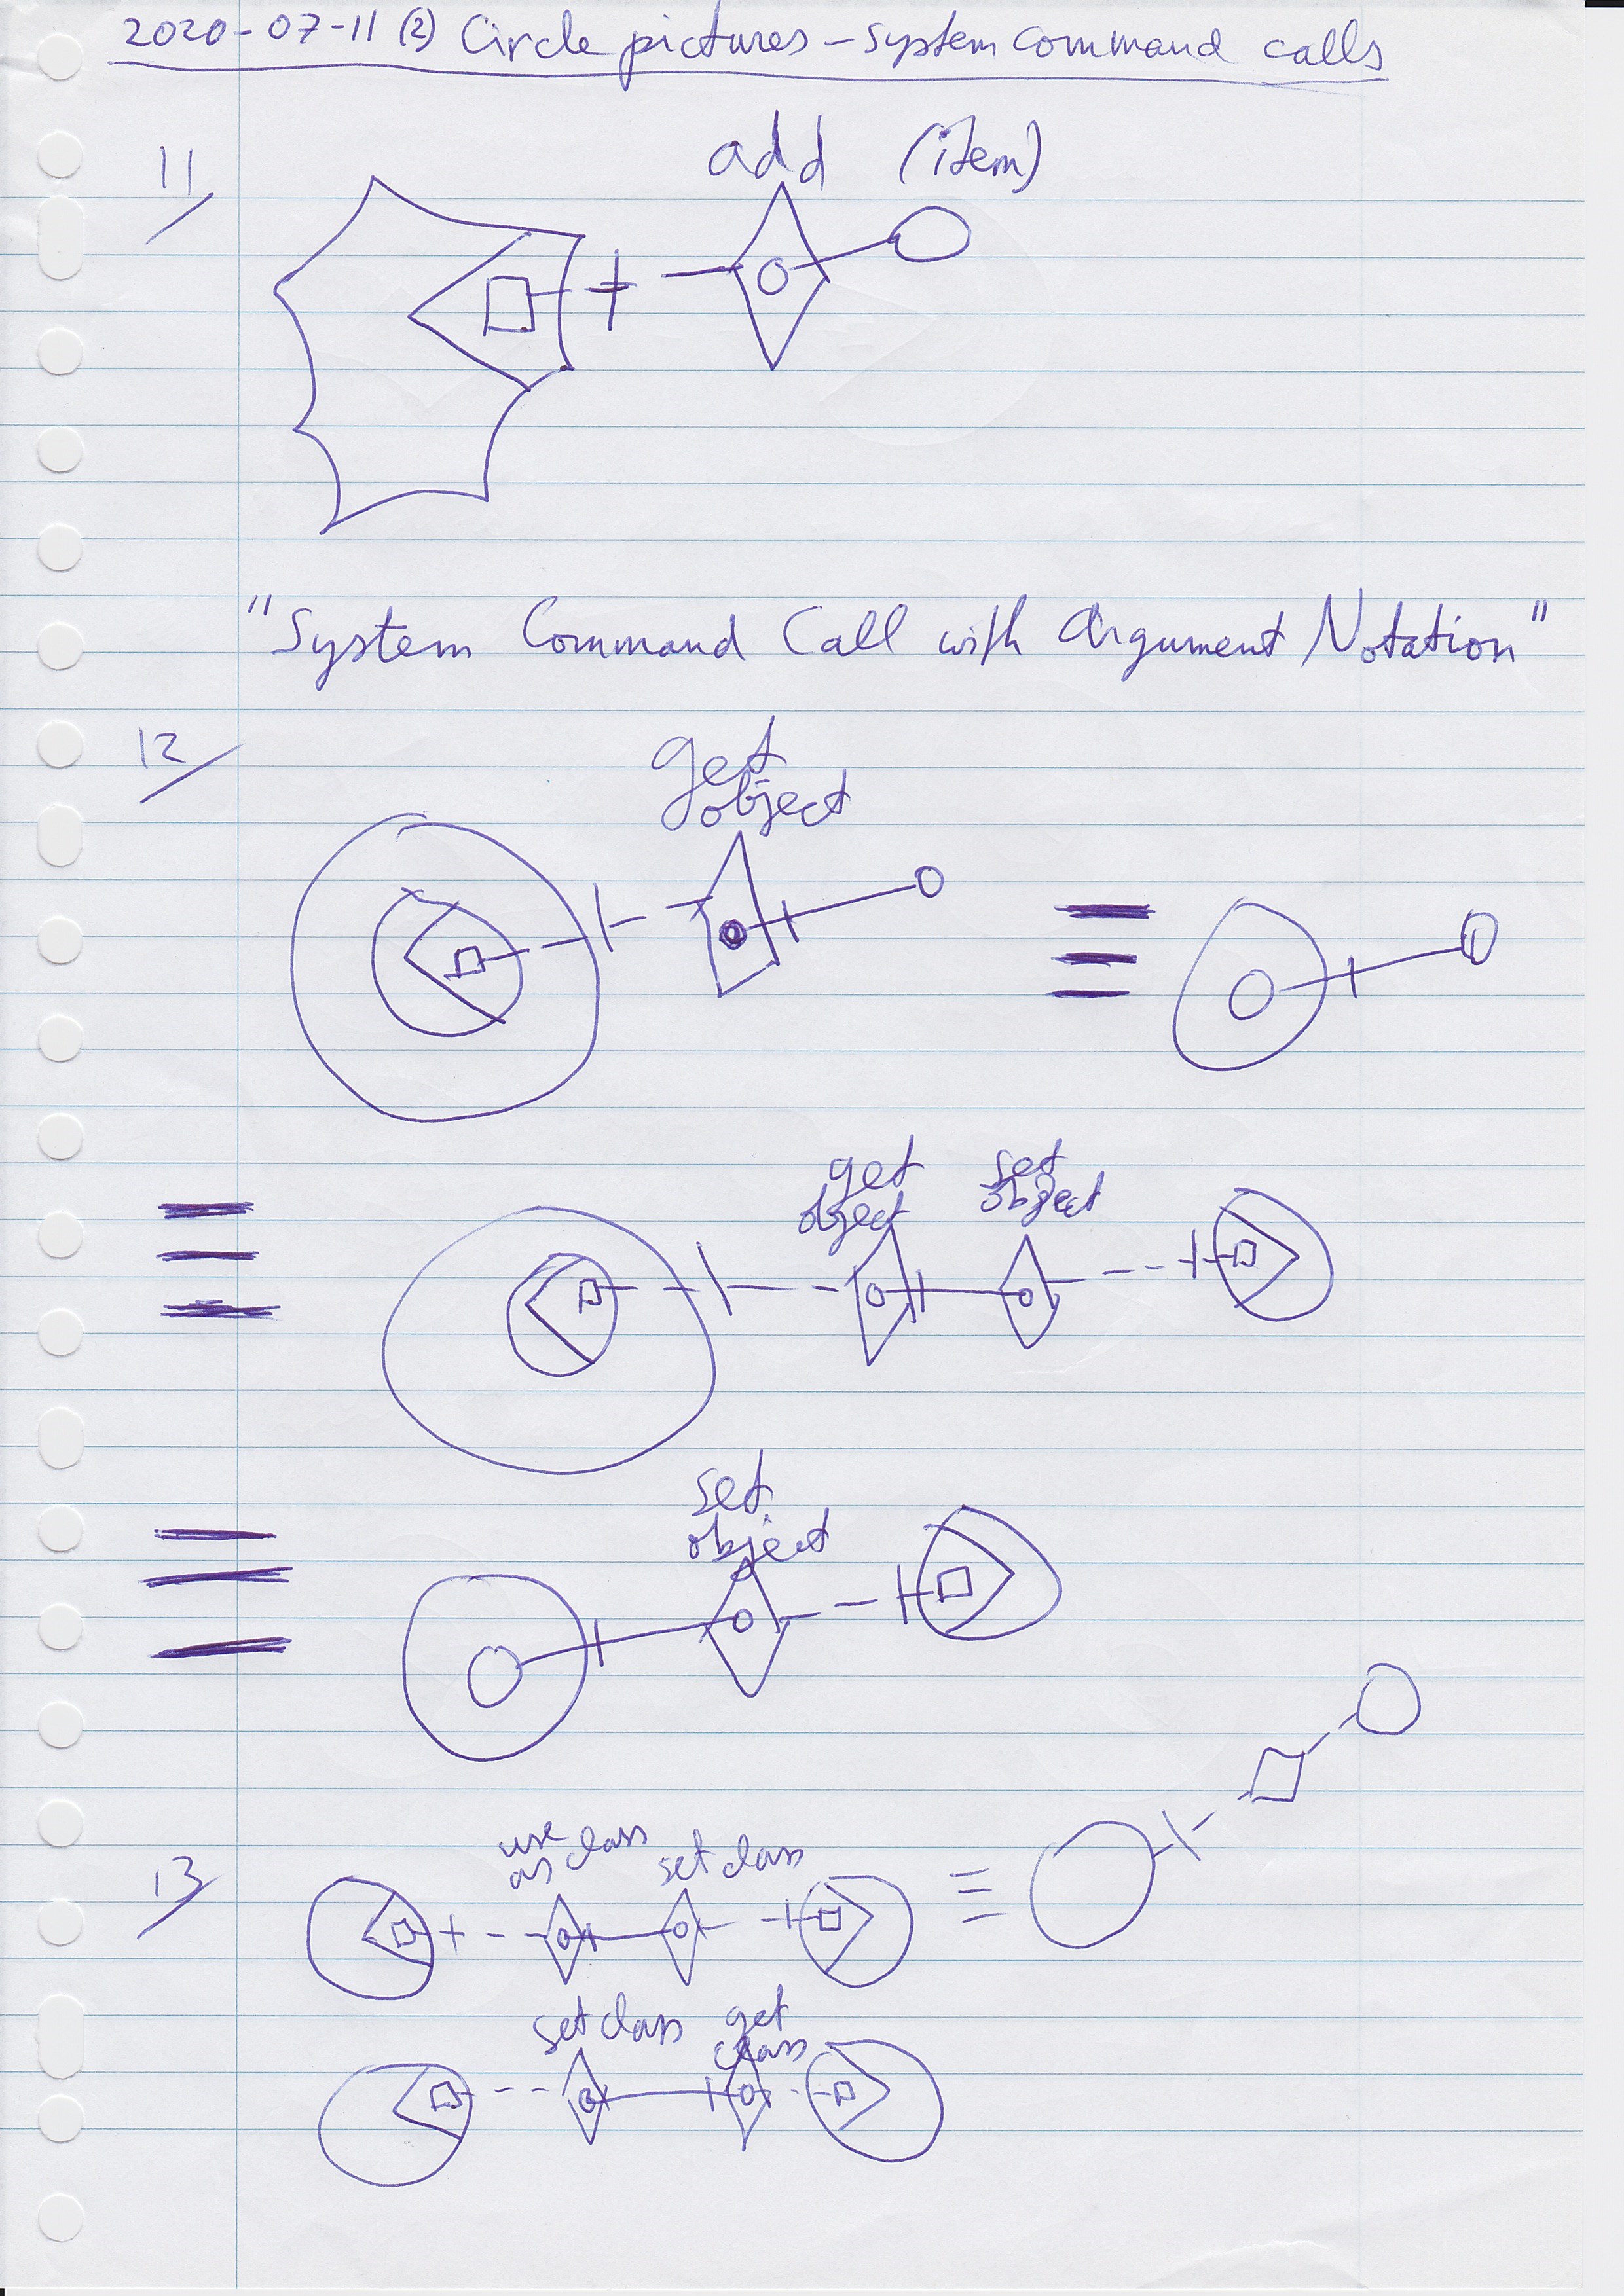 2020-07-11 (2) Circle pictures - System command calls
11/
add (item)
"System Command Call with Argument Notation"
12/
get
object
get
object
set
object
set
object
13/
use
as class
set class
set class
get
class